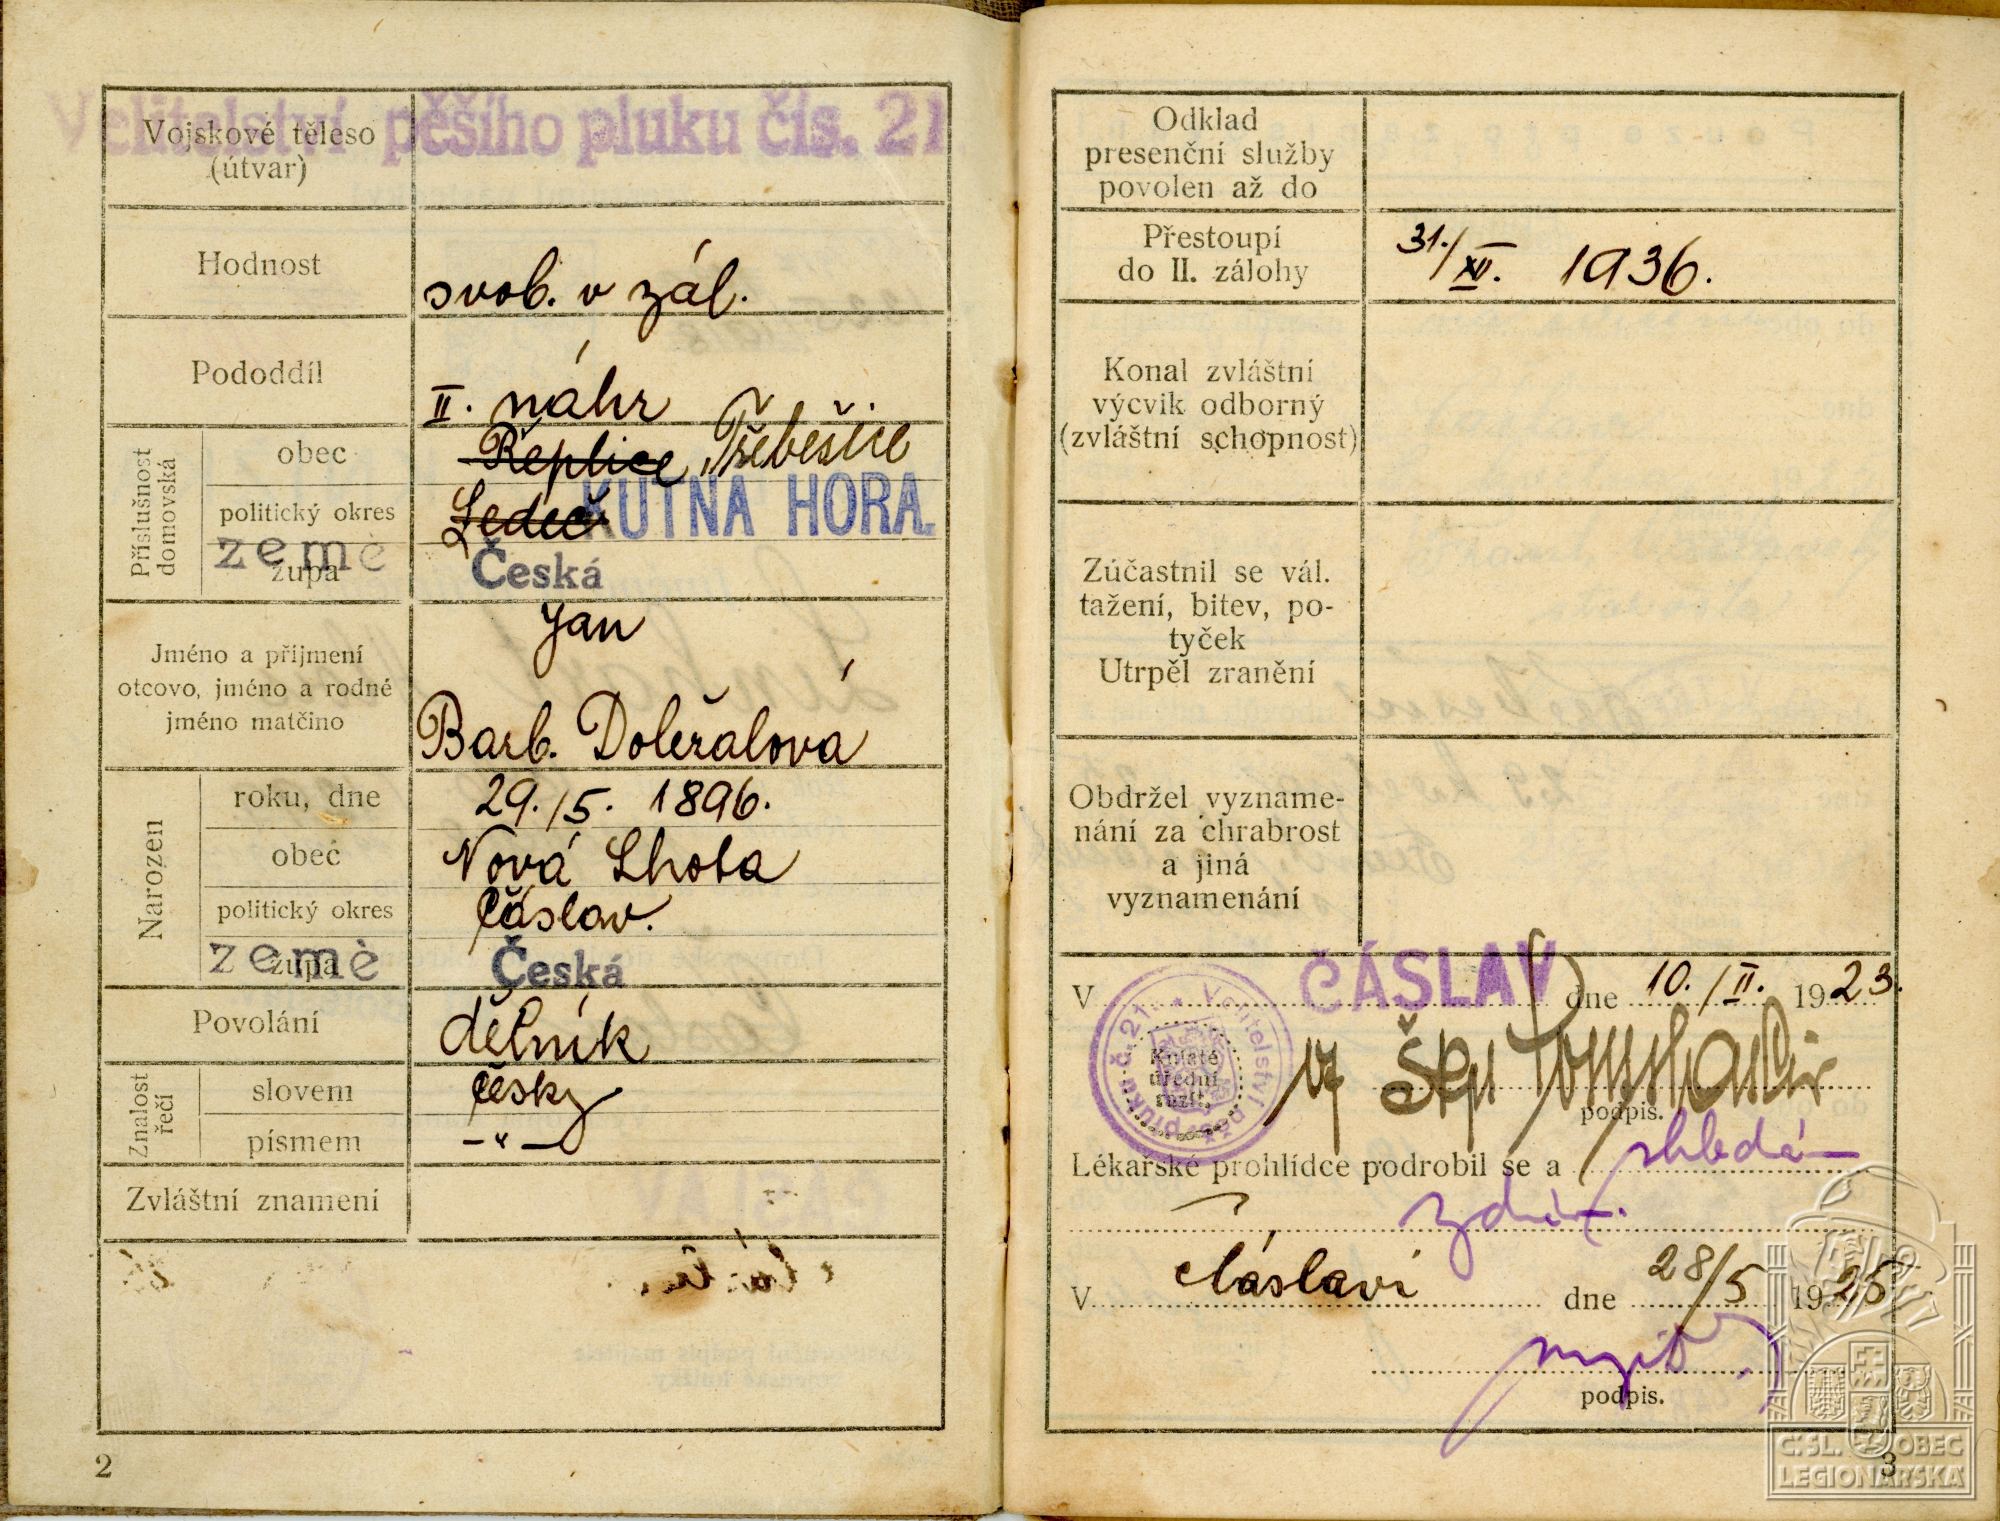 Velitelství pěšího pluku čís. 21
Vojskové těleso
(útvar)
Hodnost
svob. v zál.
Pododdíl
II. náhr
Příslušnost
domovská
obec
Řeplice, Třebešice
politický okres
Ledeč KUTNÁ HORA.
země
župa
Česká
Jméno a příjmení
otcovo, jméno a rodné
jméno matčino
Jan
Barb. Doležalová
Narozen
roku, dne
29./5. 1896.
obec
Nová Lhota
politický okres
Čáslav.
země
župa
Česká
Povolání
dělník
Znalost
řečí
slovem
česky
písmem
-"-
Zvláštní znamení
2
Odklad
presenční služby
povolen až do
Přestoupí
do II. zálohy
31./XII. 1936.
Konal zvláštní
výcvik odborný
(zvláštní schopnost)
Zúčastnil se vál.
tažení, bitev, po-
tyček
Utrpěl zranění
Obdržel vyzname-
nání za chrabrost
a jiná
vyznamenání
V ČÁSLAV dne 10./II. 1923.
Velitelství pěš. pluku č. 21.
Kulaté
úřední
razít.
škpt
podpis.
Lékařské prohlídce podrobil se a shledán
zdráv.
V Čáslavi dne 28/5 1925
podpis.
3
Č. SL. OBEC
LEGIONÁŘSKÁ